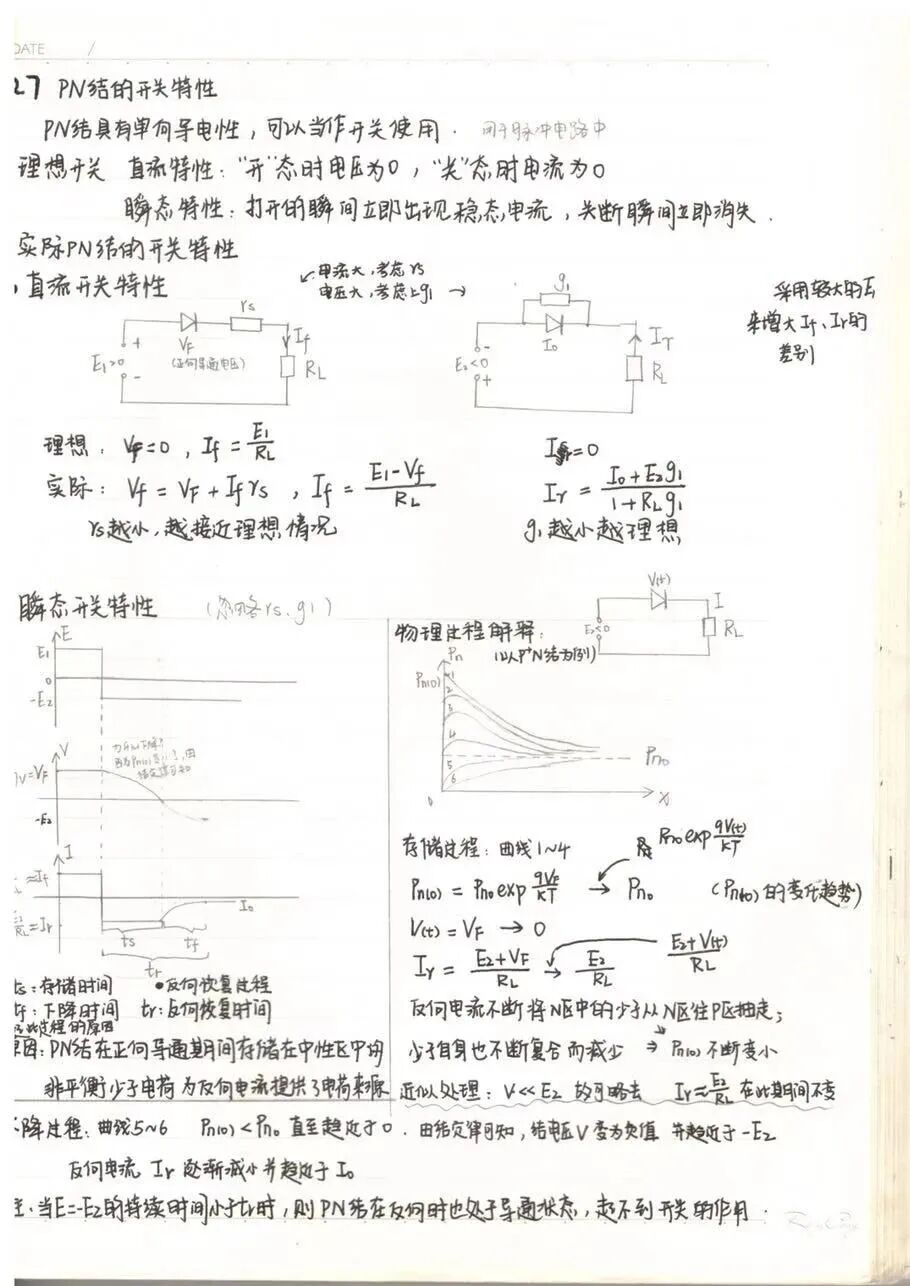 DATE /
2.7 PN结的开关特性
PN结具有单向导电性，可以当作开关使用. 用于脉冲电路中
理想开关 直流特性："开"态时电压为0，"关"态时电流为0
瞬态特性：打开的瞬间立即出现稳态电流，关断瞬间立即消失.
实际PN结的开关特性
直流开关特性
←电流大，考虑rs
电压大，考虑上g1 →
采用较大的E1
来增大If、Ir的
差别
+ VF rs If RL
E1>0
(正向导通电压)
-
g1
- I0 Ir RL
E2<0
+
理想：VF=0，If = E1/RL
实际：Vf = VF + If rs，If = (E1-Vf)/RL
rs越小，越接近理想情况
Ir=0
Ir = (I0+E2g1)/(1+RLg1)
g1越小越理想
瞬态开关特性 (忽略rs、g1)
E
E1
0
-E2
V
V=VF
-E2
I
≈If
=Ir
I0
ts tf
tr
ts：存储时间 •反向恢复过程
tf：下降时间 tr：反向恢复时间
此过程的原因
原因：PN结在正向导通期间存储在中性区中的
非平衡少子电荷为反向电流提供了电荷来源
物理过程解释：
(以P⁺N结为例)
V(t) I
E2<0 RL
Pn
Pn(0)
1
2
3
4
5
6
Pn0
0 x
存储过程：曲线1~4
Pn0 exp qV(t)/kT
Pn(0) = Pn0 exp qVF/kT → Pn0 (Pn(0)的变化趋势)
V(t) = VF → 0
Ir = (E2+VF)/RL → E2/RL
(E2+V(t))/RL
反向电流不断将N区中的少子从N区往P区抽走；
少子自身也不断复合而减少 ⇒ Pn(0)不断变小
近似处理：V<<E2 故可略去 Ir≈E2/RL 在此期间不变
下降过程：曲线5~6 Pn(0)<Pn0 直至趋近于0. 由结定律可知，结电压V变为负值 并趋近于-E2
反向电流 Ir 逐渐减小并趋近于I0
注：当E=-E2的持续时间小于tr时，则PN结在反向时也处于导通状态，起不到开关的作用.